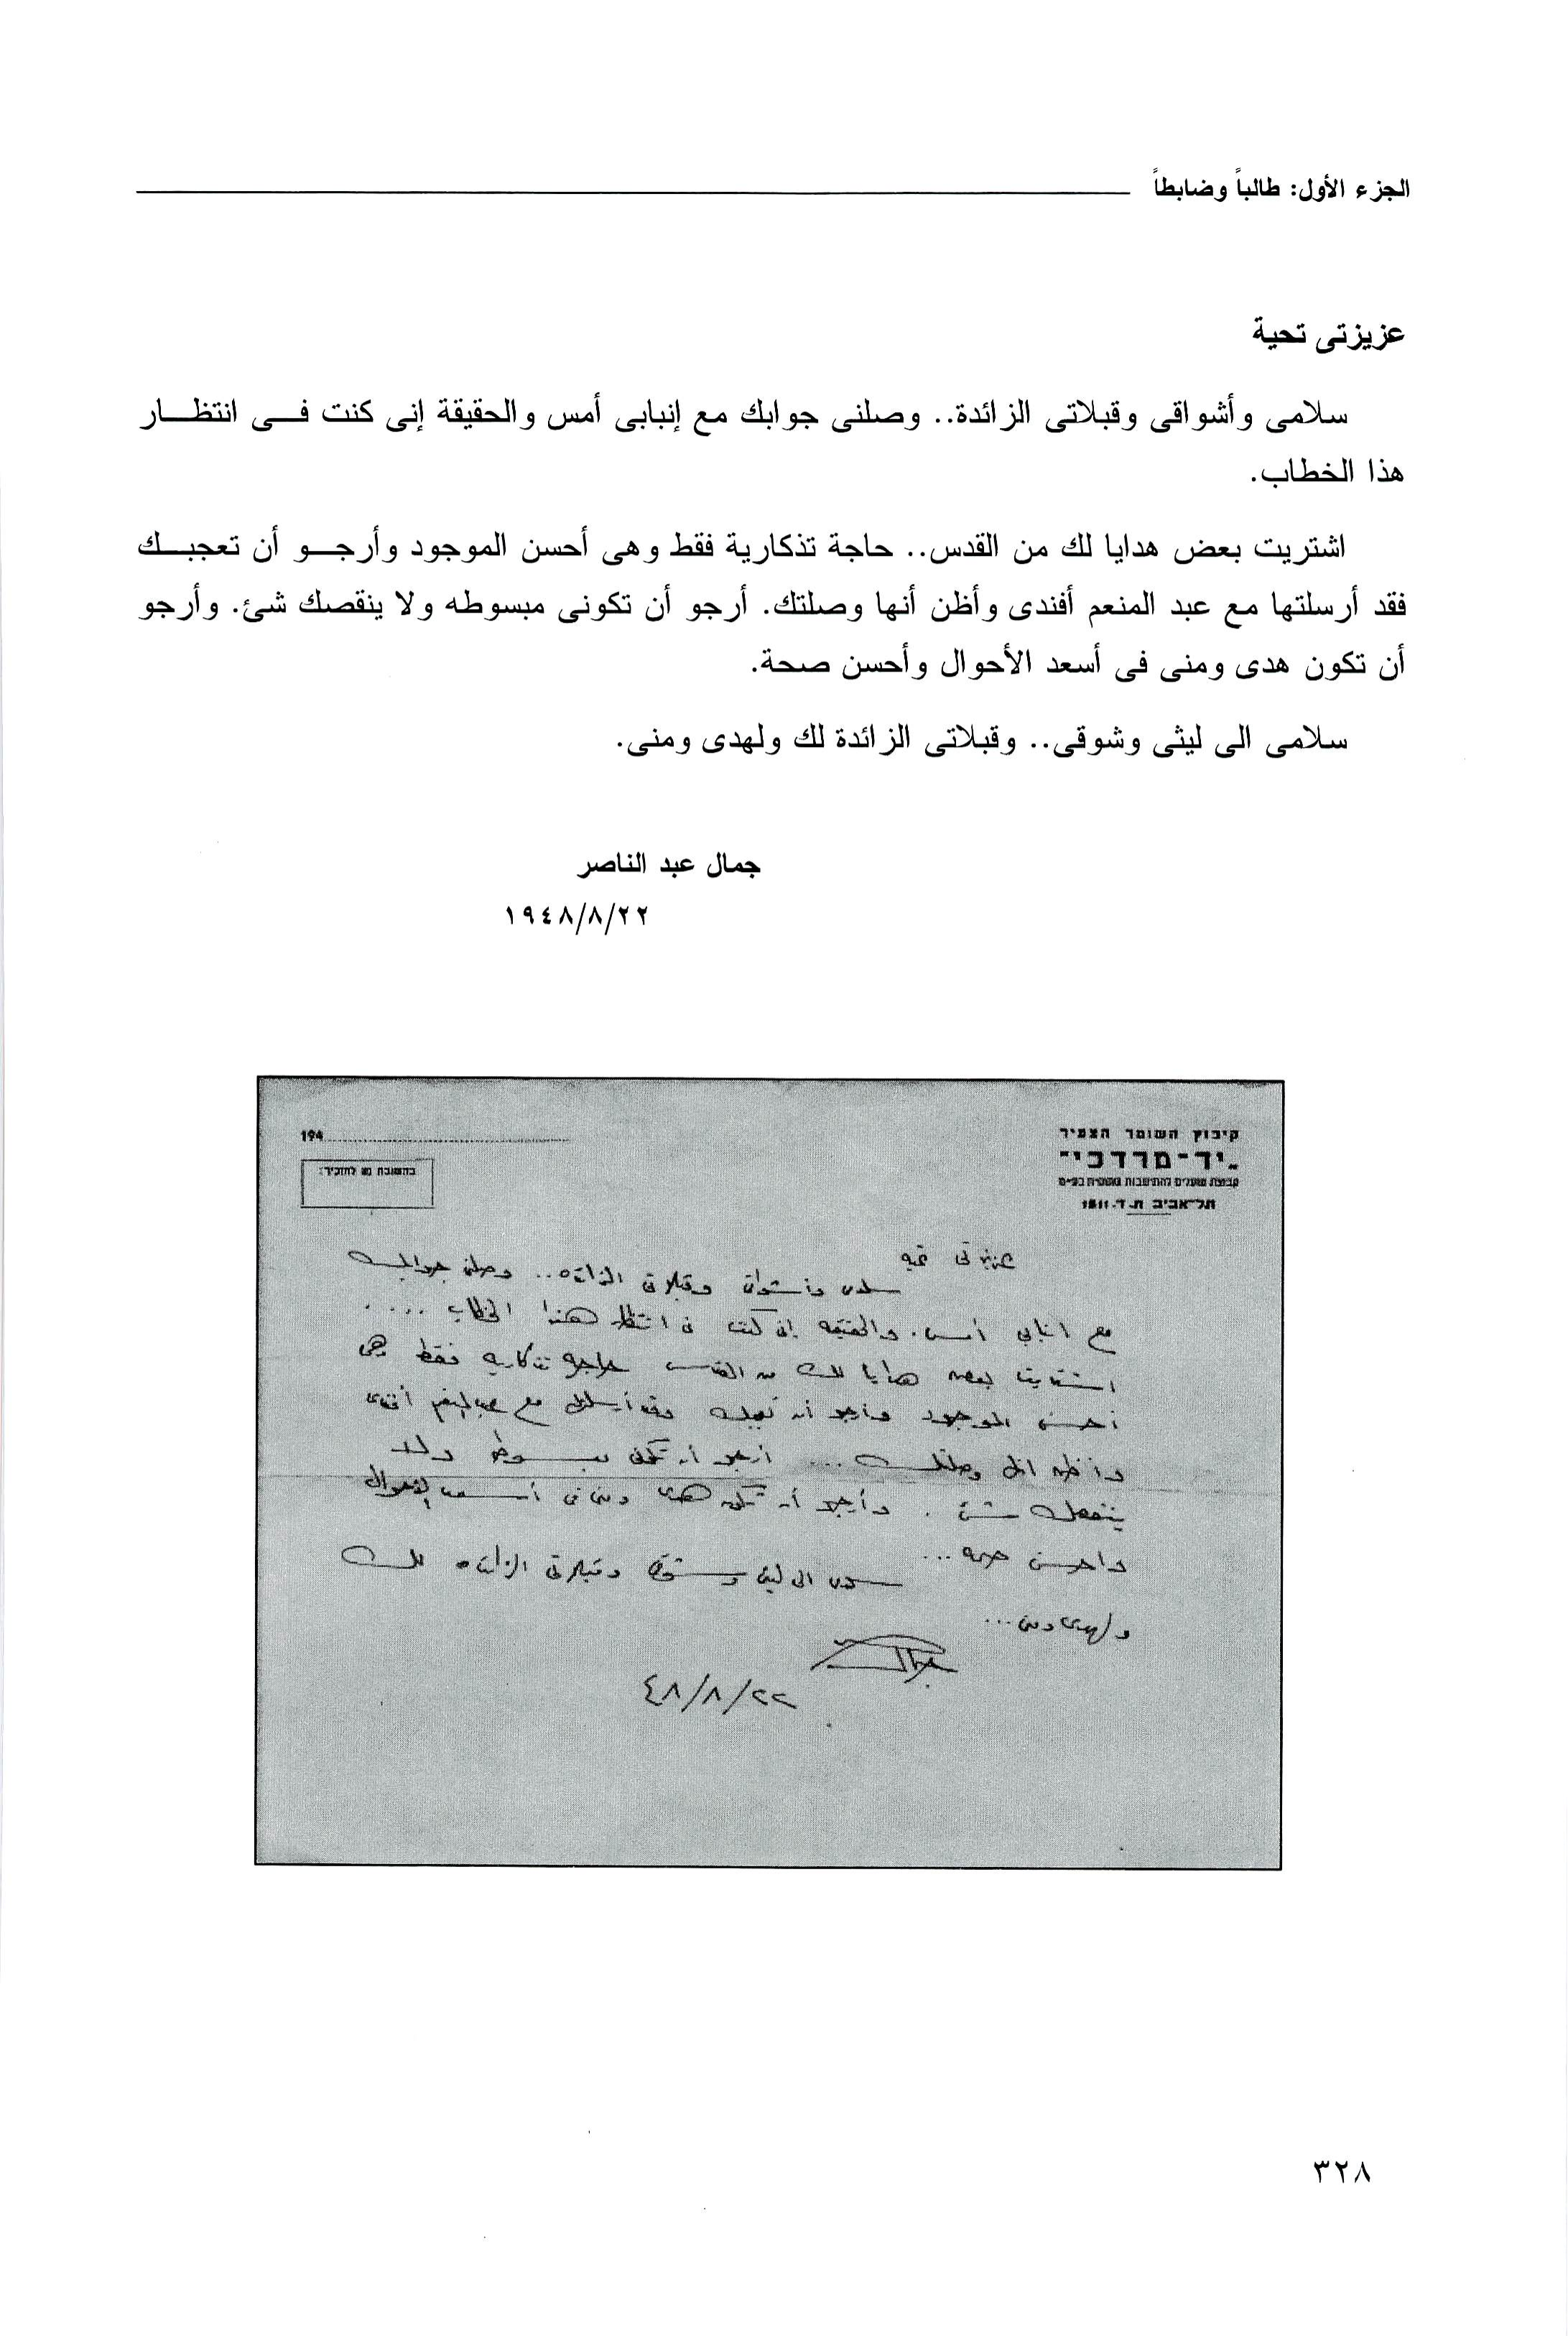 الجزء الأول: طالباً وضابطاً
عزيزتى تحية
سلامى وأشواقى وقبلاتى الزائدة.. وصلنى جوابك مع إنبابى أمس والحقيقة إنى كنت فى انتظار
هذا الخطاب.
اشتريت بعض هدايا لك من القدس.. حاجة تذكارية فقط وهى أحسن الموجود وأرجو أن تعجبك
فقد أرسلتها مع عبد المنعم أفندى وأظن أنها وصلتك. أرجو أن تكونى مبسوطه ولا ينقصك شئ. وأرجو
أن تكون هدى ومنى فى أسعد الأحوال وأحسن صحة.
سلامى الى ليثى وشوقى.. وقبلاتى الزائدة لك ولهدى ومنى.
جمال عبد الناصر
١٩٤٨/٨/٢٢
קיבוץ השומר הצעיר
יד-מרדכי"
תל-אביב ת.ד. 1811
194
בתשובה נא להזכיר:
عزيزتى تحيه
سلامى وأشواقى وقبلاتى الزائده.. وصلنى جوابك
مع انبابى أمس. والحقيقه إنى كنت فى انتظار هذا الخطاب ....
اشتريت بعض هدايا لك من القدس حاجه تذكاريه فقط وهى
أحسن الموجود وأرجو أن تعجبك وقد أرسلتها مع عبد المنعم أفندى
وأظن انها وصلتك .... أرجو أن تكونى مبسوطه ولا
ينقصك شئ . وأرجو أن تكون هدى ومنى فى أسعد الأحوال
وأحسن صحه ...
سلامى الى ليثى وشوقى وقبلاتى الزائده لك
ولهدى ومنى ...
جمال
٤٨/٨/٢٢
٣٢٨